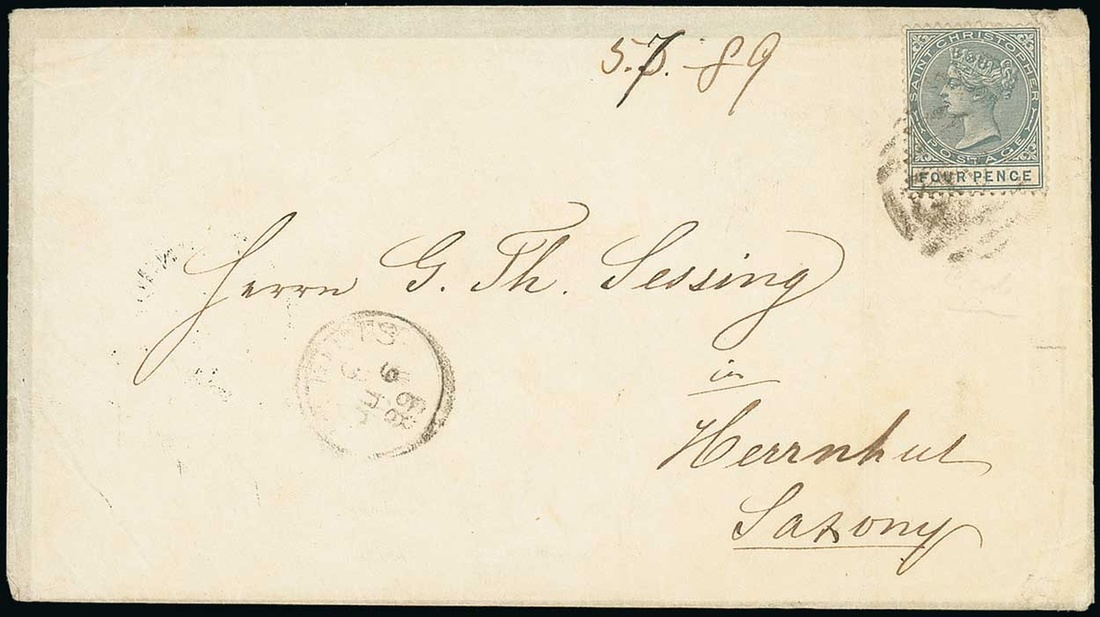 5.7.89
SAINT CHRISTOPHER
POSTAGE
FOUR PENCE
Herrn G. Th. Sessing
in
Herrnhut
Saxony